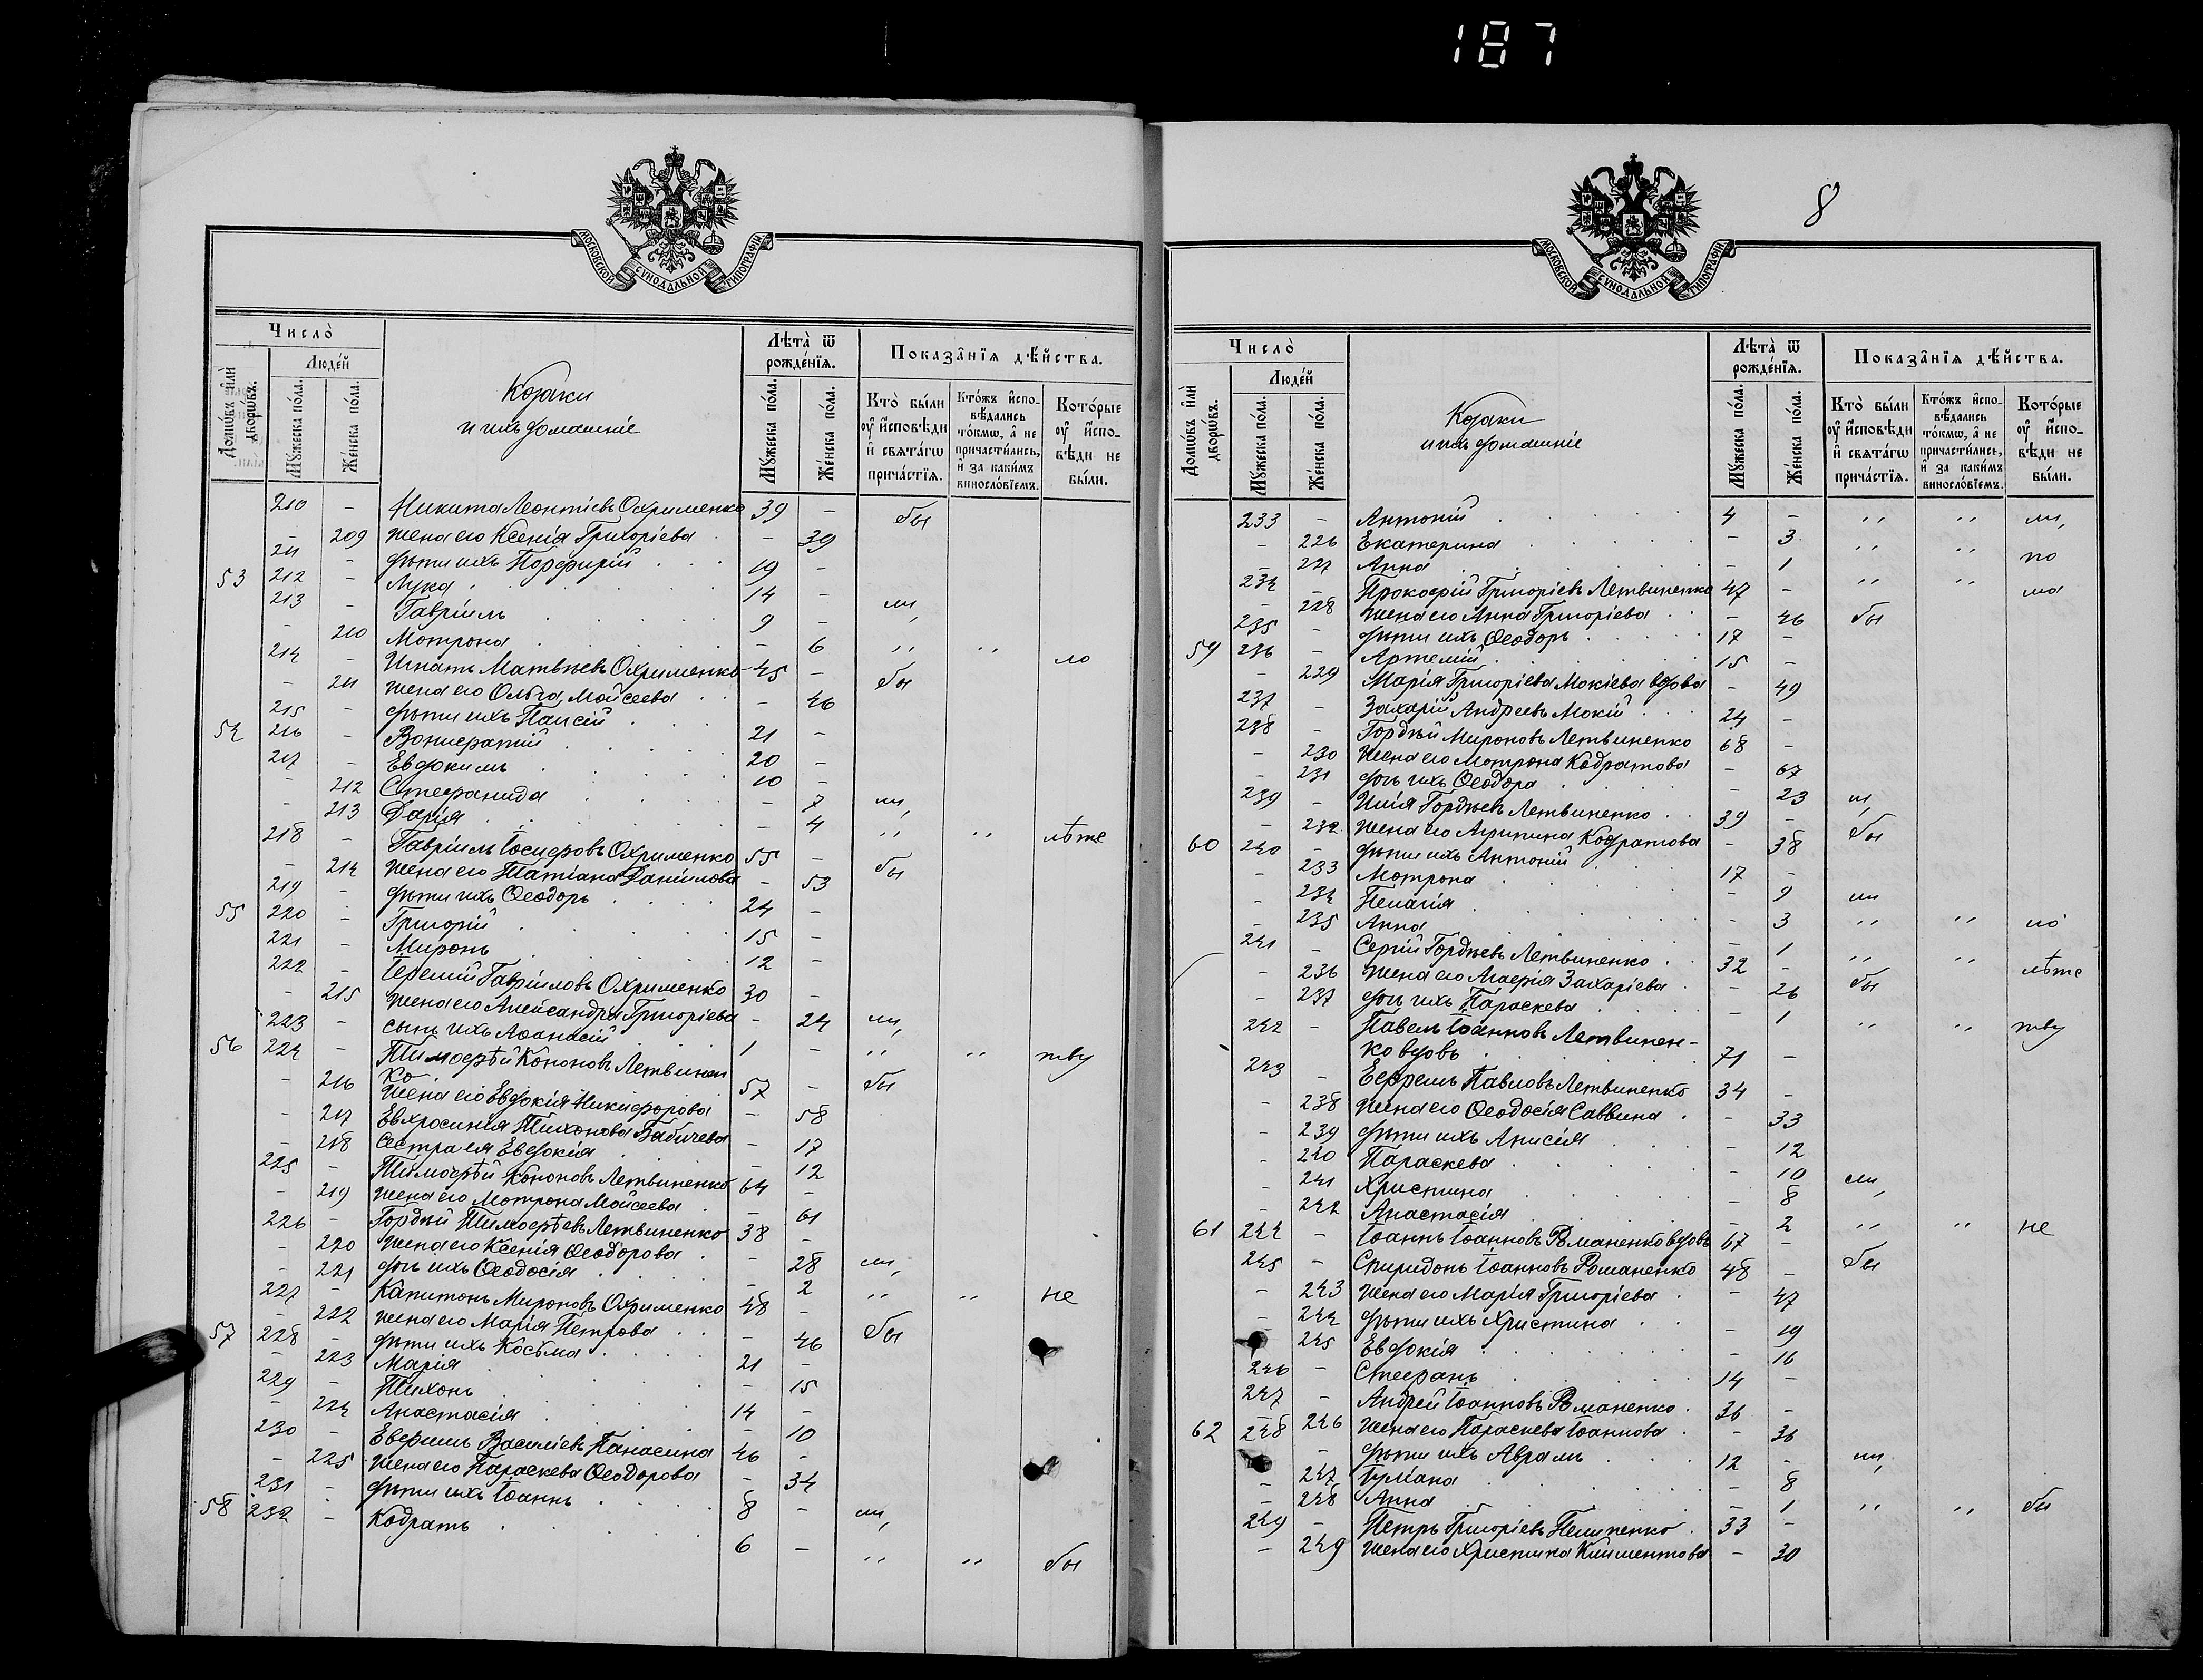 187
МОСКОВСКОЙ СУНОДАЛЬНОЙ ТИПОГРАФІИ
Число̀
Домѡ́въ и҆лѝ дворѡ́въ.
Люде́й
Му́жеска по́ла.
Же́нска по́ла.
Козаки
и ихъ домашніе
Лѣта̀ ѿ рожде́нїѧ.
Му́жеска по́ла.
Же́нска по́ла.
Показа̑нїѧ дѣ́йства.
Кто̀ бы́ли оу҆ и҆сповѣди и҆ свята́гѡ прича́стїѧ.
Кто́жъ и҆сповѣдались то́кмѡ, а҆ не причасти́лись, и҆ за каки́мъ винослóвїемъ.
Кото́рые оу҆ и҆сповѣди не бы́ли.
210 - Никита Леонтіевъ Охрименко 39 - бы
- 209 жена его Ксенія Григоріева - 39
211 - дѣти ихъ Порфирій 19 -
53 212 - Лука 14 -
213 - Гавріилъ 9 - ли,
- 210 Мотрона - 6 ,, ,, ло
214 - Игнатъ Матвѣевъ Охрименко 45 - бы
- 211 жена его Ольга Мойсеева - 46
215 - дѣти ихъ Паисій 21 -
54 216 - Вонифатій 20 -
217 - Евдокимъ 10 -
- 212 Стефанида - 7 ли,
- 213 Дарія - 4 ,, ,, лѣтс
218 - Гавріилъ Іосифовъ Охрименко 55 - бы
- 214 жена его Татіана Даніилова - 53
219 - дѣти ихъ Ѳеодоръ 24 -
55 220 - Григорій 15 -
221 - Миронъ 12 -
222 - Іеремій Гавріиловъ Охрименко 30 -
- 215 жена его Александра Григоріева - 24 ли,
223 - сынъ ихъ Аѳанасій 1 - ,, ,, тву
56 224 - Тимоѳѣй Кононовъ Летвинен
ко 57 - бы
- 216 жена его Евдокія Никифорова - 58
- 217 Евхросинія Тихонова Бабичева - 17
- 218 Сестра ея Евдокія - 12
225 - Тимоѳѣй Кононовъ Летвиненко 64 -
- 219 жена его Мотрона Мойсеева - 61
226 - Гордѣй Тимоѳѣевъ Летвиненко 38 -
- 220 жена его Ксенія Ѳеодорова - 28 ли,
- 221 дочь ихъ Ѳеодосія - 2 ,, ,, не
227 - Капитонъ Мироновъ Охрименко 48 - бы
- 222 жена его Марія Петрова - 46
57 228 - дѣти ихъ Косьма 21 -
- 223 Марія - 15
229 - Тихонъ 14 -
- 224 Анастасія - 10
230 - Евфимъ Василіевъ Панасина 46 -
- 225 жена его Параскева Ѳеодорова - 34
231 - дѣти ихъ Іоаннъ 8 - ли,
58 232 - Кодратъ 6 - ,, ,, бы
8
МОСКОВСКОЙ СУНОДАЛЬНОЙ ТИПОГРАФІИ
Число̀
Домѡ́въ и҆лѝ дворѡ́въ.
Люде́й
Му́жеска по́ла.
Же́нска по́ла.
Козаки
и ихъ домашніе
Лѣта̀ ѿ рожде́нїѧ.
Му́жеска по́ла.
Же́нска по́ла.
Показа̑нїѧ дѣ́йства.
Кто̀ бы́ли оу҆ и҆сповѣди и҆ свята́гѡ прича́стїѧ.
Кто́жъ и҆сповѣдались то́кмѡ, а҆ не причасти́лись, и҆ за каки́мъ винослóвїемъ.
Кото́рые оу҆ и҆сповѣди не бы́ли.
233 - Антоній 4 - ,, ,, ли,
- 226 Екатерина - 3 ,, ,, по
- 227 Анна - 1 ,, ,, ма
234 - Прокофій Григоріевъ Летвиненко 47 - бы
- 228 жена его Анна Григоріева - 46
235 - дѣти ихъ Ѳеодоръ 17 -
59 236 - Артемій 15 -
- 229 Марія Григоріева Мокіева вдова - 49
237 - Захарій Андреевъ Мокій 24 -
238 - Гордѣй Мироновъ Летвиненко 68 -
- 230 жена его Мотрона Кодратова - 67
- 231 дочь ихъ Ѳеодора - 23 ли,
239 - Илія Гордѣевъ Летвиненко 39 - бы
- 232 жена его Агрипина Кодратова - 38
60 240 - дѣти ихъ Антоній 17 -
- 233 Мотрона - 9 ли
- 234 Пелагія - 3 ,, ,, ло
- 235 Анна - 1 ,, ,, лѣтс
241 - Сергій Гордѣевъ Летвиненко 32 - бы
- 236 жена его Агафія Захаріева - 26
- 237 дочь ихъ Параскева - 1 ,, ,, тву
242 - Павелъ Іоанновъ Летвинен-
ко вдовъ 71 -
243 - Ефремъ Павловъ Летвиненко 34 -
- 238 жена его Ѳеодосія Саввина - 33
- 239 дѣти ихъ Анисія - 12
- 240 Параскева - 10
- 241 Христина - 8 ли,
- 242 Анастасія - 2 ,, ,, не
61 244 - Іоаннъ Іоанновъ Романенко вдовъ 67 - бы
245 - Спиридонъ Іоанновъ Романенко 48 -
- 243 жена его Марія Григоріева - 47
- 244 дѣти ихъ Христина - 19
- 245 Евдокія - 16
246 - Стефанъ 14 -
247 - Андрей Іоанновъ Романенко 36 -
- 246 жена его Параскева Іоаннова - 36
62 248 - дѣти ихъ Аврамъ 12 - ли,
- 247 Іуліана - 8
- 248 Анна - 1 ,, ,, бы
249 - Петръ Григоріевъ Пелипенко 33 -
- 249 жена его Христина Климентова - 30